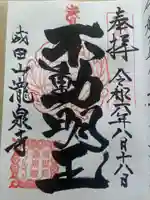 奉拝
令和六年八月十八日
不動明王
成田山瀧泉寺